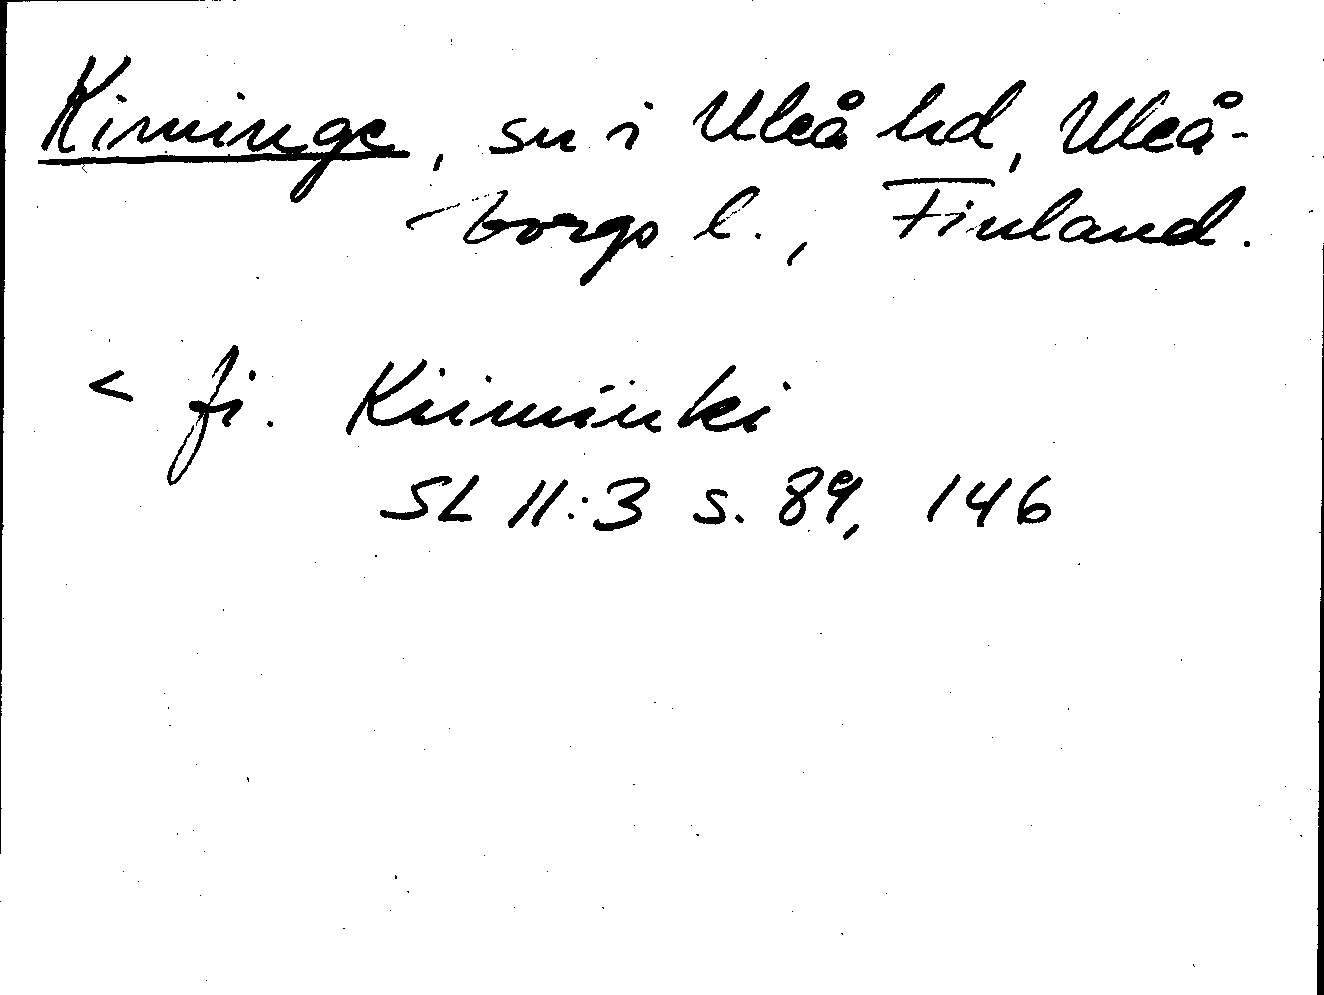 Kiminge, sn i Uleå hd, Uleå-
borgs l., Finland.
< fi. Kiiminki
SL 11:3 s. 89, 146